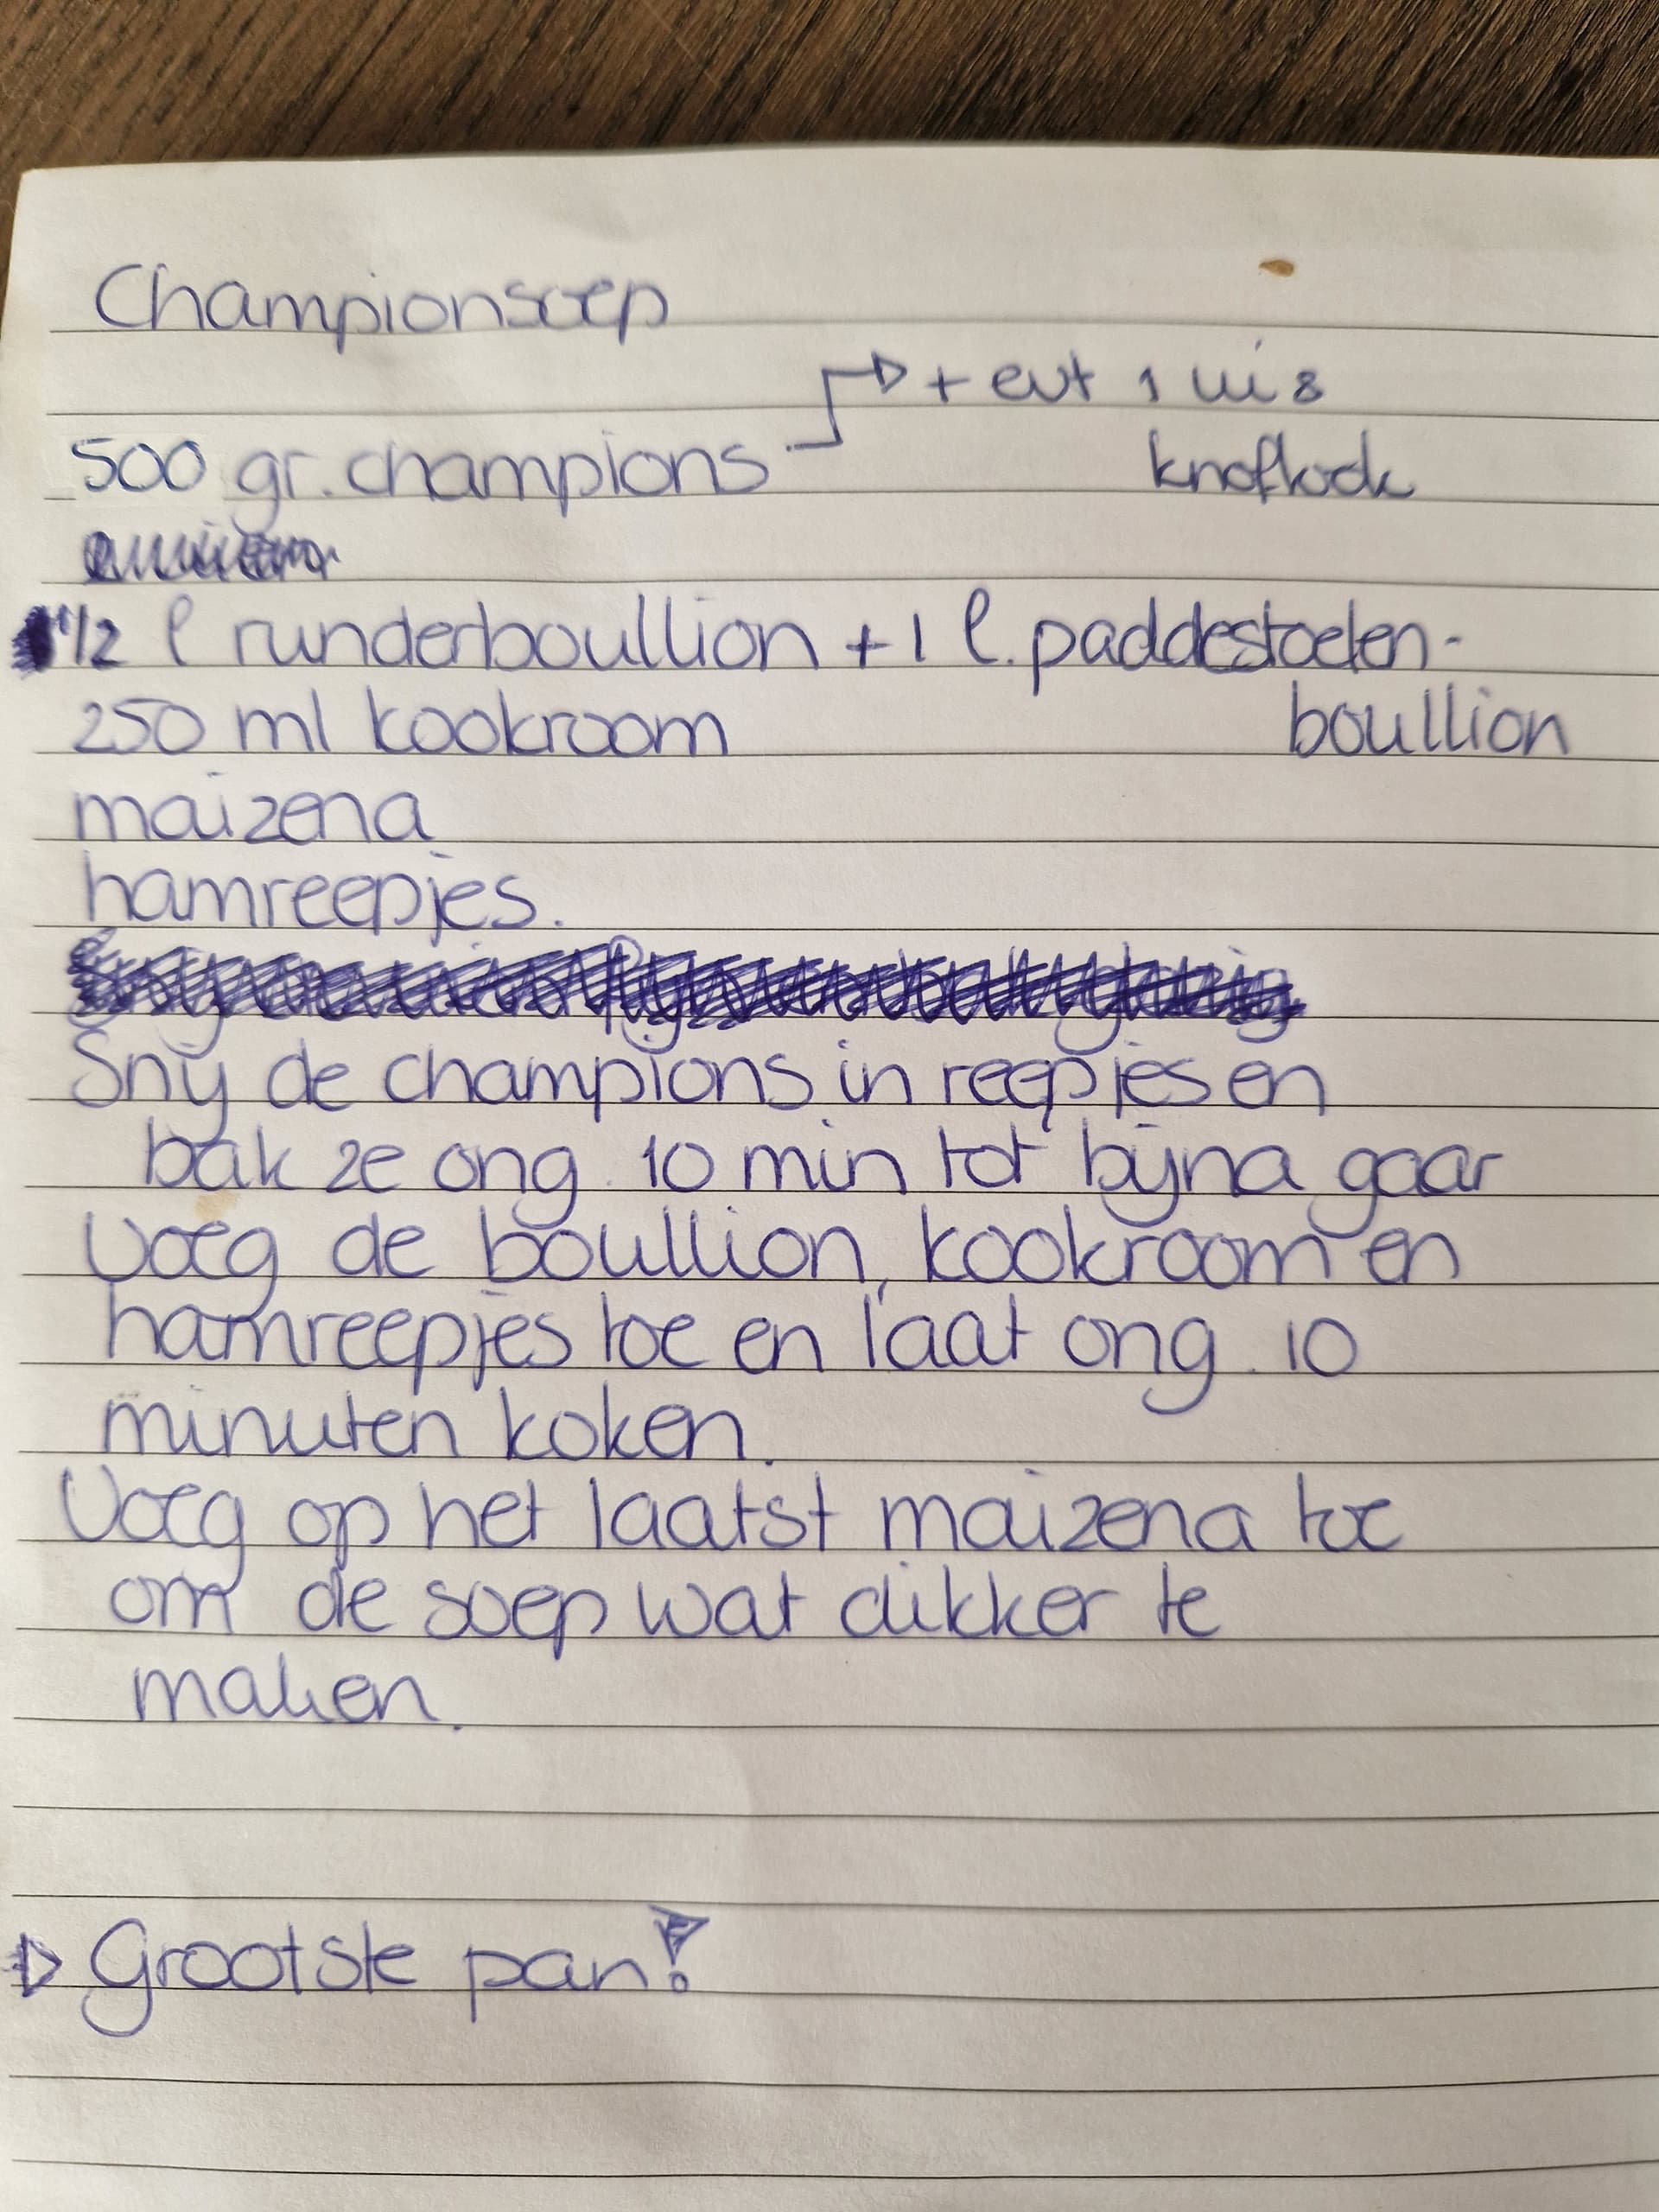 Championsoep
+ evt 1 ui &
500 gr. champions
knoflook
1/2 l runderboullion + 1 l. paddestoelen-
boullion
250 ml kookroom
maizena
hamreepjes.
Snij de champions in reepjes en
bak ze ong. 10 min tot bijna gaar
Voeg de boullion, kookroom en
hamreepjes toe en laat ong. 10
minuten koken.
Voeg op het laatst maizena toe
om de soep wat dikker te
maken.
Grootste pan!